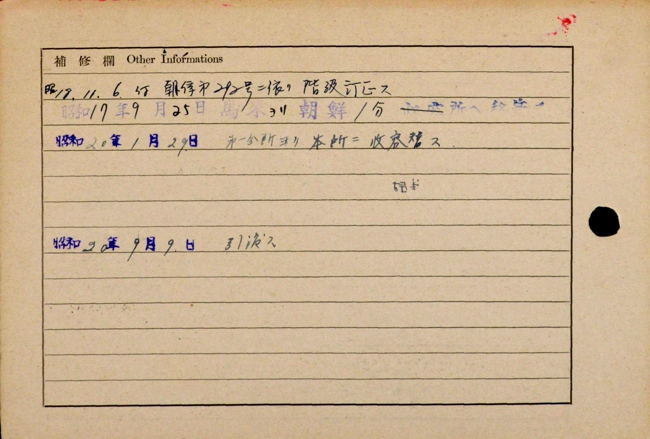 補修欄 Other Informations
昭18.11.6.付 朝俘市292号ニ依リ 階級訂正ス
昭和17年9月25日 馬来ヨリ 朝鮮1分
昭和20年1月29日 第一分所ヨリ 本所ニ 収容替ス
昭和20年9月9日 引渡ス